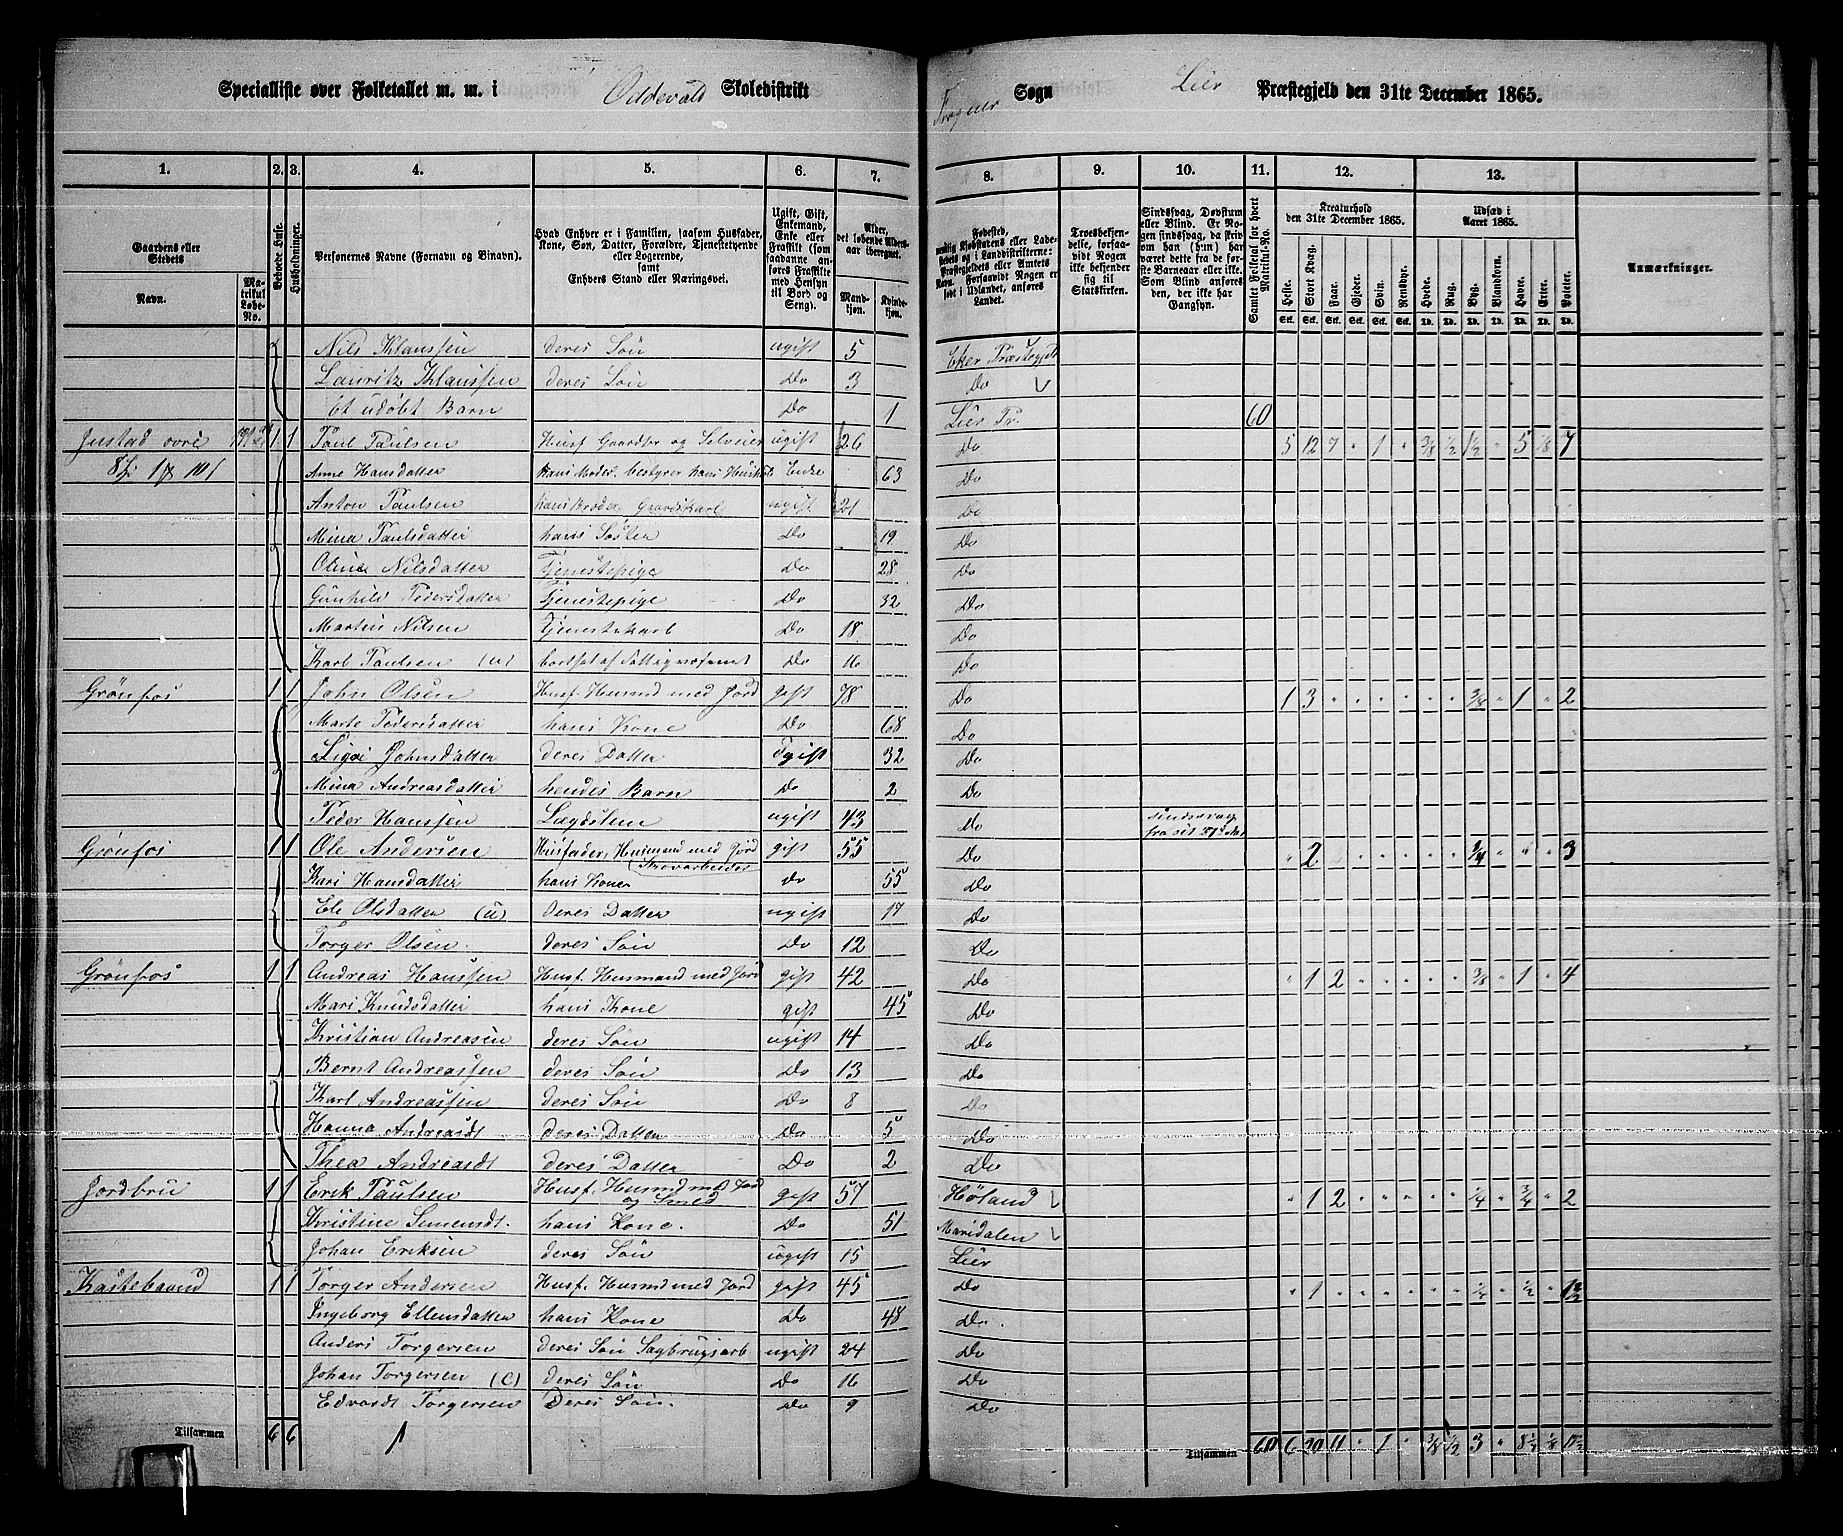 Specialliste over Folketallet m. m. i Oddevald Skoledistrikt
Frogner Sogn Lier Præstegjeld den 31te December 1865.
1. 2. 3. 4. 5. 6. 7. 8. 9. 10. 11. 12. 13.
Gaardens eller Stedets
Navn.
Matrikul Løbe-No.
Beboede Huse.
Husholdninger.
Personernes Navne (Fornavn og Binavn).
Hvad Enhver er i Familien, saasom Husfader, Kone, Søn, Datter, Forældre, Tjenestetyende eller Logerende, samt Enhvers Stand eller Næringsvei.
Ugift, Gift, Enkemand, Enke eller Fraskilt (som saadanne anføres Fraskilte med Hensyn til Bord og Seng).
Alder, det løbende Alders-aar iberegnet.
Mand-kjøn.
Kvinde-kjøn.
Troesbekjendelse, forsaavidt Nogen ikke bekjender sig til Statskirken.
Sindssvag, Døvstum eller Blind. Er Nogen sindssvag, da skriv om han (hun) har været dette fra de første Barneaar eller ikke. Som Blind anføres den, der ikke har Gangsyn.
Samlet Folketal for hvert Matrikul-No.
Kreaturhold den 31te December 1865.
Udsæd i Aaret 1865.
Heste. Stort Kvæg. Faar. Gjeder. Svin. Rensdyr. Hvede. Rug. Byg. Blandkorn. Havre. Erter. Poteter.
Anmærkninger.
Nils Klanssen deres Søn ugift 5 Eker Præstegjeld
Lauritz Klanssen deres Søn Do 3 Do
Et udøbt Barn Do 1 Lier Pr. 60
Justad øvre 1 1 Paul Paulsen Husf Gaardbr og Selveier ugift 26 Do 5 12 7 " 1 " 3/8 1/2 1 1/2 " 5 1/8 7
Anne Hansdatter hans Moder bestyrer hans Huus Enke 63 Do
Anton Paulsen hans Broder Gaardskarl ugift 21 Do
Mina Paulsdatter hans Søster Do 19 Do
Oline Nilsdatter Tjenestepige Do 28 Do
Gunhild Pedersdatter Tjenestepige Do 32 Do
Martin Nilsen Tjenestekarl Do 18 Do
Karl Paulsen (u) bortsat af Fattigvæsenet Do 16 Do
Grønfos 1 1 John Olsen Husf. Husmd med Jord gift 78 Do 1 3 " " " " " " 3/8 " 1 " 2
Marte Pedersdatter hans Kone Do 68 Do
Sigri Johnsdatter deres Datter Ugift 32 Do
Mina Andreasdatter hendes Barn Do 2 Do
Peder Hanssen Lægdslem ugift 43 Do Sindssvag
Grønfos 1 1 Ole Andersen Husfader, Husmand med Jord Skovarbeider gift 55 Do " 2 " " " " " " 1/4 " " " 3
Kari Hansdatter hans Kone do 55 Do
Ele Olsdatter (u) deres Datter ugift 17 Do
Torger Olsen deres Søn Do 12 Do
Grønfos 1 1 Andreas Hanssen Husf. Husmand med Jord gift 42 Do " 1 2 " " " " " 3/8 " 1 " 4
Mari Knudsdatter hans Kone gift 45 Do
Kristian Andreasen deres Søn ugift 14 Do
Bernt Andreassen deres Søn Do 13 Do
Karl Andreassen deres Søn Do 8 Do
Hanna Andreasdt deres Datter Do 5 Do
Thea Andreasdt deres Datter Do 2 Do
Jordbru 1 1 Erik Paulsen Husf. Husmd med Jord og Smed gift 57 Høland " 1 2 " " " " " 1/4 " 3/4 " 2
Kristine Simensdt. hans Kone. Do 51 Maridalen
Johan Eriksen deres Søn ugift 15 Lier
Kastebaand 1 1 Torger Andersen Husf. Husmd med Jord gift 45 Do " 1 " " " " " " 1/4 " 1/2 " 1 1/2
Ingeborg Ellensdatter hans Kone Do 48 Do.
Anders Torgersen deres Søn Sagbrugsarb ugift 24 Do
Johan Torgersen (C) deres Søn Do 16 Do
Edvardt Torgersen Deres Søn. Do 9 Do
Tilsammen 6 6 1 Tilsammen 60 6 20 11 " 1 " 3/8 1/2 3 "